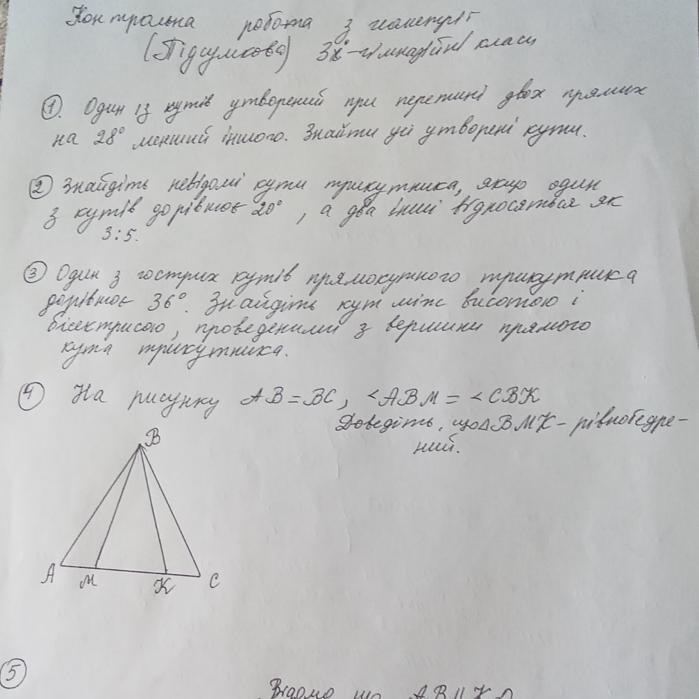 Контрольна робота з геометрії
(Підсумкова) 3х-гімназійні класи
1. Один із кутів утворений при перетині двох прямих
на 28° менший іншого. Знайти усі утворені кути.
2 Знайдіть невідомі кути трикутника, якщо один
з кутів дорівнює 20°, а два інші відносяться як
3:5.
3 Один з гострих кутів прямокутного трикутника
дорівнює 36°. Знайдіть кут між висотою і
бісектрисою, проведеними з вершини прямого
кута трикутника.
4 На рисунку AB=BC, <ABM = <CBK
Доведіть, що ΔBMK - рівнобедре-
ний.
B
A M K C
5
Відомо, що AB || K